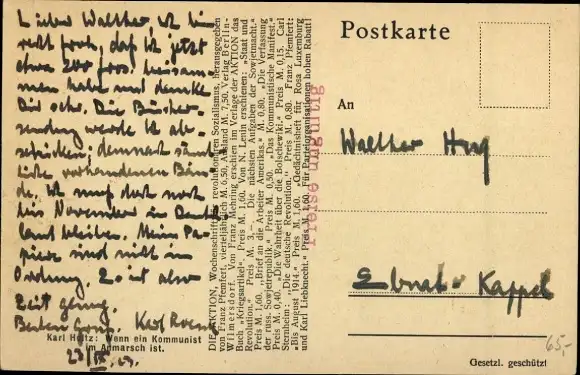 Lieber Walther, ich bin
recht froh, daß ich jetzt
etwa 200 frcs. beisam-
men habe und danke
Dir sehr. Die Bücher-
sendung werde ich ab-
schicken; demnach sämt-
liche vorhandenen Bän-
de. Ich muß doch noch
bis November in Deutsch-
land bleiben. Meine Pa-
piere sind nicht in
Ordnung. Es ist also
Zeit genug.
Besten Gruss, Karl
Karl Holtz: Wenn ein Kommunist
im Anmarsch ist.
DIE AKTION, Wochenschrift für revolutionären Sozialismus, herausgegeben
von Franz Pfemfert, vierteljährlich M. 6.50, Ausland M. 7.50. Verlag Berlin-
Wilmersdorf. Von Franz Mehring erschien im Verlage der AKTION das
Buch „Kriegsartikel". Preis M. 1.60. Von N. Lenin erschienen: „Staat und
Revolution." Preis M. 3.–. „Die nächsten Aufgaben der Sowjetmacht."
Preis M. 1.60, „Brief an die Arbeiter Amerikas." M. 0.80, „Die Verfassung
der russ. Sowjetrepublik." Preis M. 0.50. „Das Kommunistische Manifest."
Preis M. 0.40. „Die Wahrheit über die Bolschewiki." Preis M. 0.15. Carl
Sternheim: „Die deutsche Revolution." Preis M. 0.80. Franz Pfemfert:
„Bis August 1914." Preis M. 1.60. „Gedächtnisheft für Rosa Luxemburg
und Karl Liebknecht." Preis M. 1.60. Für Parteiorganisationen hohen Rabatt!
Preise ungültig
Postkarte
An
Walther Hug
Ebnat-Kappel
65,-
Gesetzl. geschützt!